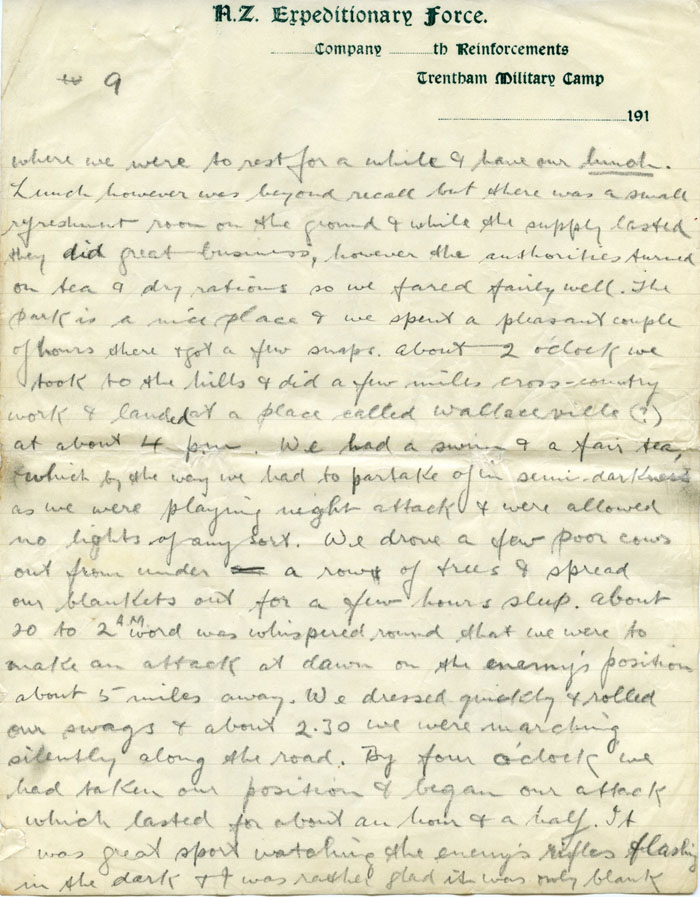 N.Z. Expeditionary Force.
Company th Reinforcements
Trentham Military Camp
191
9
where we were to rest for a while & have our lunch.
Lunch however was beyond recall but there was a small
refreshment room on the ground & while the supply lasted
they did great business, however the authorities turned
on tea & dry rations so we fared fairly well. The
park is a nice place & we spent a pleasant couple
of hours there & got a few snaps. about 2 o'clock we
took to the hills & did a few miles cross-country
work & landed at a place called Wallaceville (?)
at about 4 p.m. We had a swim & a fair tea,
which by the way we had to partake of in semi-darkness
as we were playing night attack & were allowed
no lights of any sort. We drove a few poor cows
out from under a row of trees & spread
our blankets out for a few hours sleep. about
20 to 2 A.M. word was whispered round that we were to
make an attack at dawn on the enemy's position
about 5 miles away. We dressed quickly & rolled
our swags & about 2.30 we were marching
silently along the road. By four o'clock we
had taken our position & began our attack
which lasted for about an hour & a half. It
was great sport watching the enemy's rifles flashing
in the dark & I was rather glad it was only blank